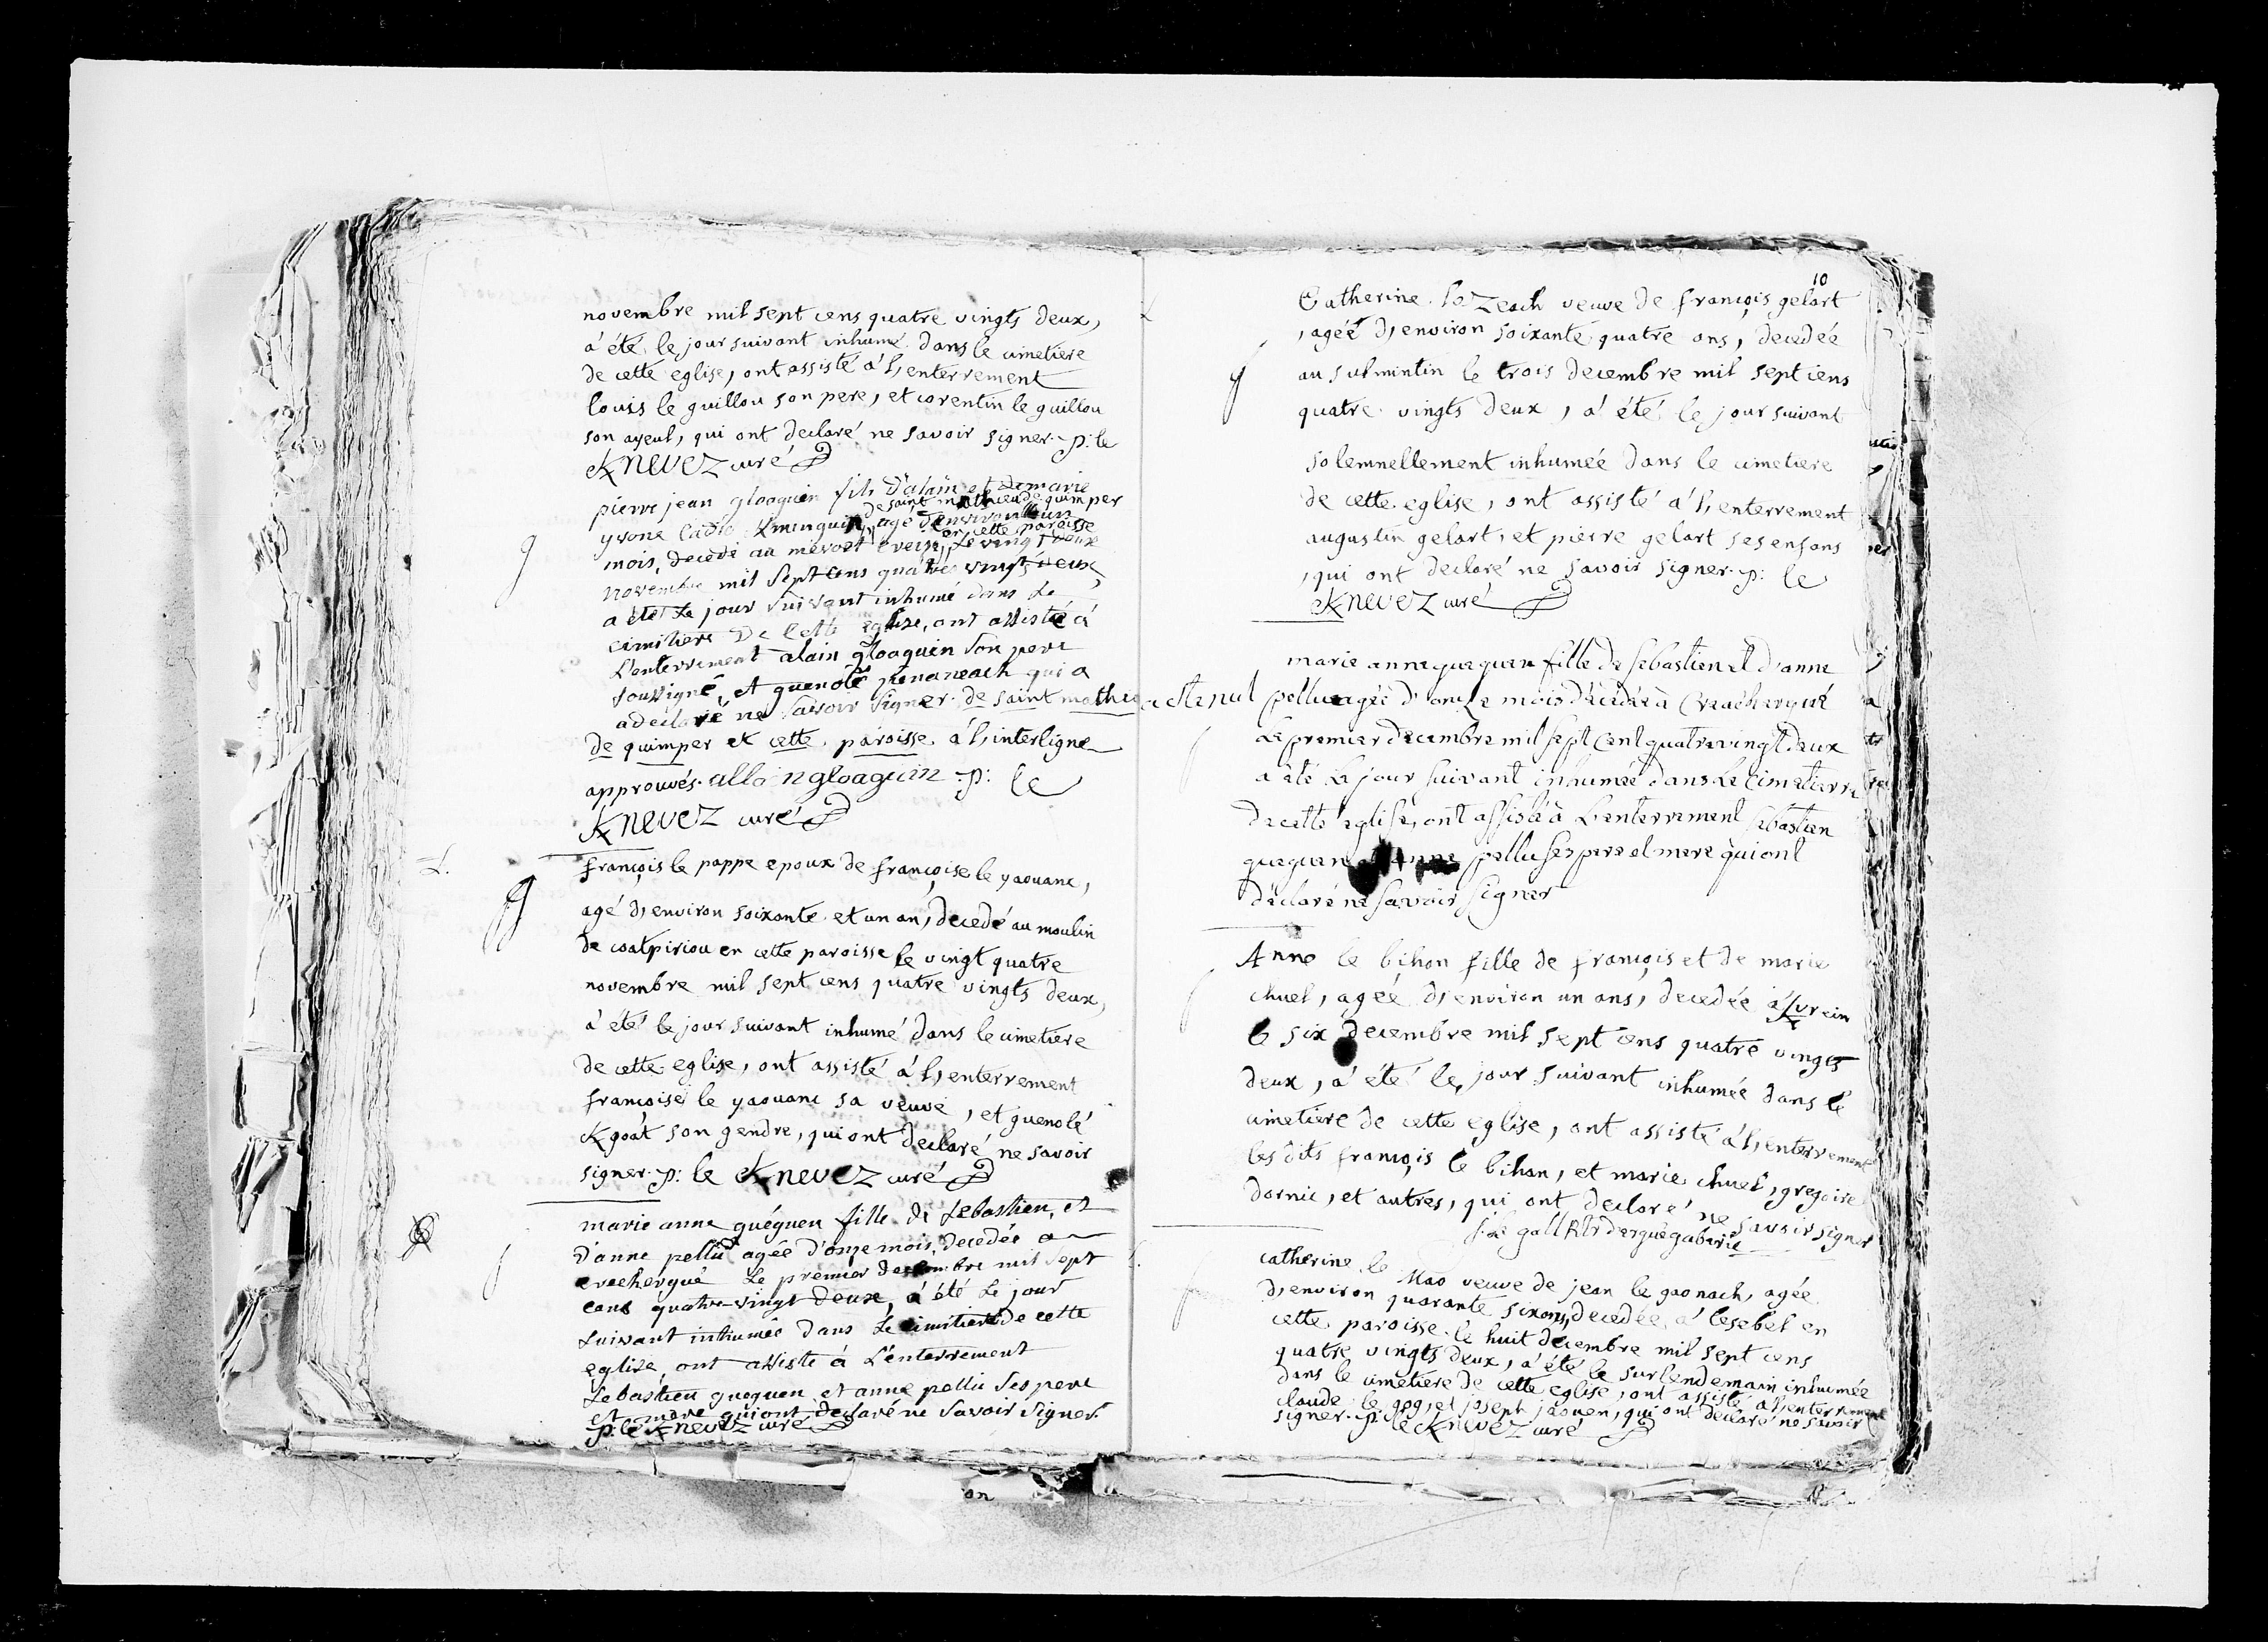 novembre mil sept cens quatre vingts deux,
a été le jour suivant inhumé dans le cimetiere
de cette eglise, ont assisté a l,enterrement
louis le guillou son pere, et corentin le guillou
son ayeul, qui ont declaré ne savoir signer. p: le
Knevez curé
pierre jean gloaguen fils d'alain et de marie
de saint mathieu de quimper
yvone agé d'environ un
en cette paroisse
mois, decedé au le vingt deux
novembre mil sept cens quatre vingt deux,
a été le jour suivant inhumé dans le
cimitiere de cette eglise, ont assisté à
L'enterrement alain gloaguen son pere
soussigné, et guenolé penaneach qui a
a declaré ne savoir signer. de saint mathieu
de quimper et cette paroisse á l,interligne
approuvés. allain gloaguin p: le
Knevez curé
françois le pappe epoux de françoise le yaouanc,
agé d,environ soixante et un an, decedé au moulin
de coatpiriou en cette paroisse le vingt quatre
novembre mil sept cens quatre vingts deux,
à été le jour suivant inhumé dans le cimetiere
de cette eglise, ont assisté á l,enterrement
françoise le yaouanc sa veuve, et guenolé
Kgoat son gendre, qui ont declaré ne savoir
signer. p: le Knevez curé
marie anne guéguen fille de Sebastien, et
d'anne pelliu agée d'onze mois, decedée a
creachergué Le premier decembre mil sept
cens quatre-vingt deux, a été le jour
suivant inhumée dans le cimitiere de cette
eglise, ont assisté à L'enterrement
Sebastien gueguen et anne pelliu ses pere
et mere qui ont declaré ne savoir signer.
p: le Knevez curé
10
Catherine le zeach veuve de françois gelart
, agéé d,environ soixante quatre ans, decedéé
au sulmintin le trois decembre mil sept cens
quatre vingts deux, á été le jour suivant
solemnellement inhumeé dans le cimetiere
de cette eglise, ont assisté á l,enterrement
augustin gelart, et pierre gelart ses enfans
, qui ont declaré ne savoir signer. p: le
Knevez curé
marie anne gueguen fille de sebastien et d'anne
acte nul pelliu agée d'onze mois décédée à Creachergué
Le premier decembre mil sept cent quatre vingt deux
a été le jour suivant inhumée dans le cimetierre
de cette eglise, ont assisté à L'enterrement sébastien
gueguen anne pelliu ses pere et mere qui ont
déclaré ne savoir signer
Anne le bihan fille de françois et de marie
chuel, agéé d,environ un ans, decedée á
le six decembre mil sept cens quatre vingts
deux, á été le jour suivant inhumée dans le
cimetiere de cette eglise, ont assisté á l,enterrement
les dits françois le bihan, et marie chuel, gregoire
dornic, et autres, qui ont declaré ne savoir signer
f. le gall Rtr d'erguegaberic
catherine le Mao veuve de jean le gaonach, agée
d,environ quarante six ans, decedée á lesebel en
cette paroisse le huit decembre mil sept cens
quatre vingts deux, á été le surlendemain inhumée
dans le cimetiere de cette eglise, ont assisté á l,enterrement
claude le gog, et joseph jaouen, qui ont declaré ne savoir
signer. p: le Knevez curé